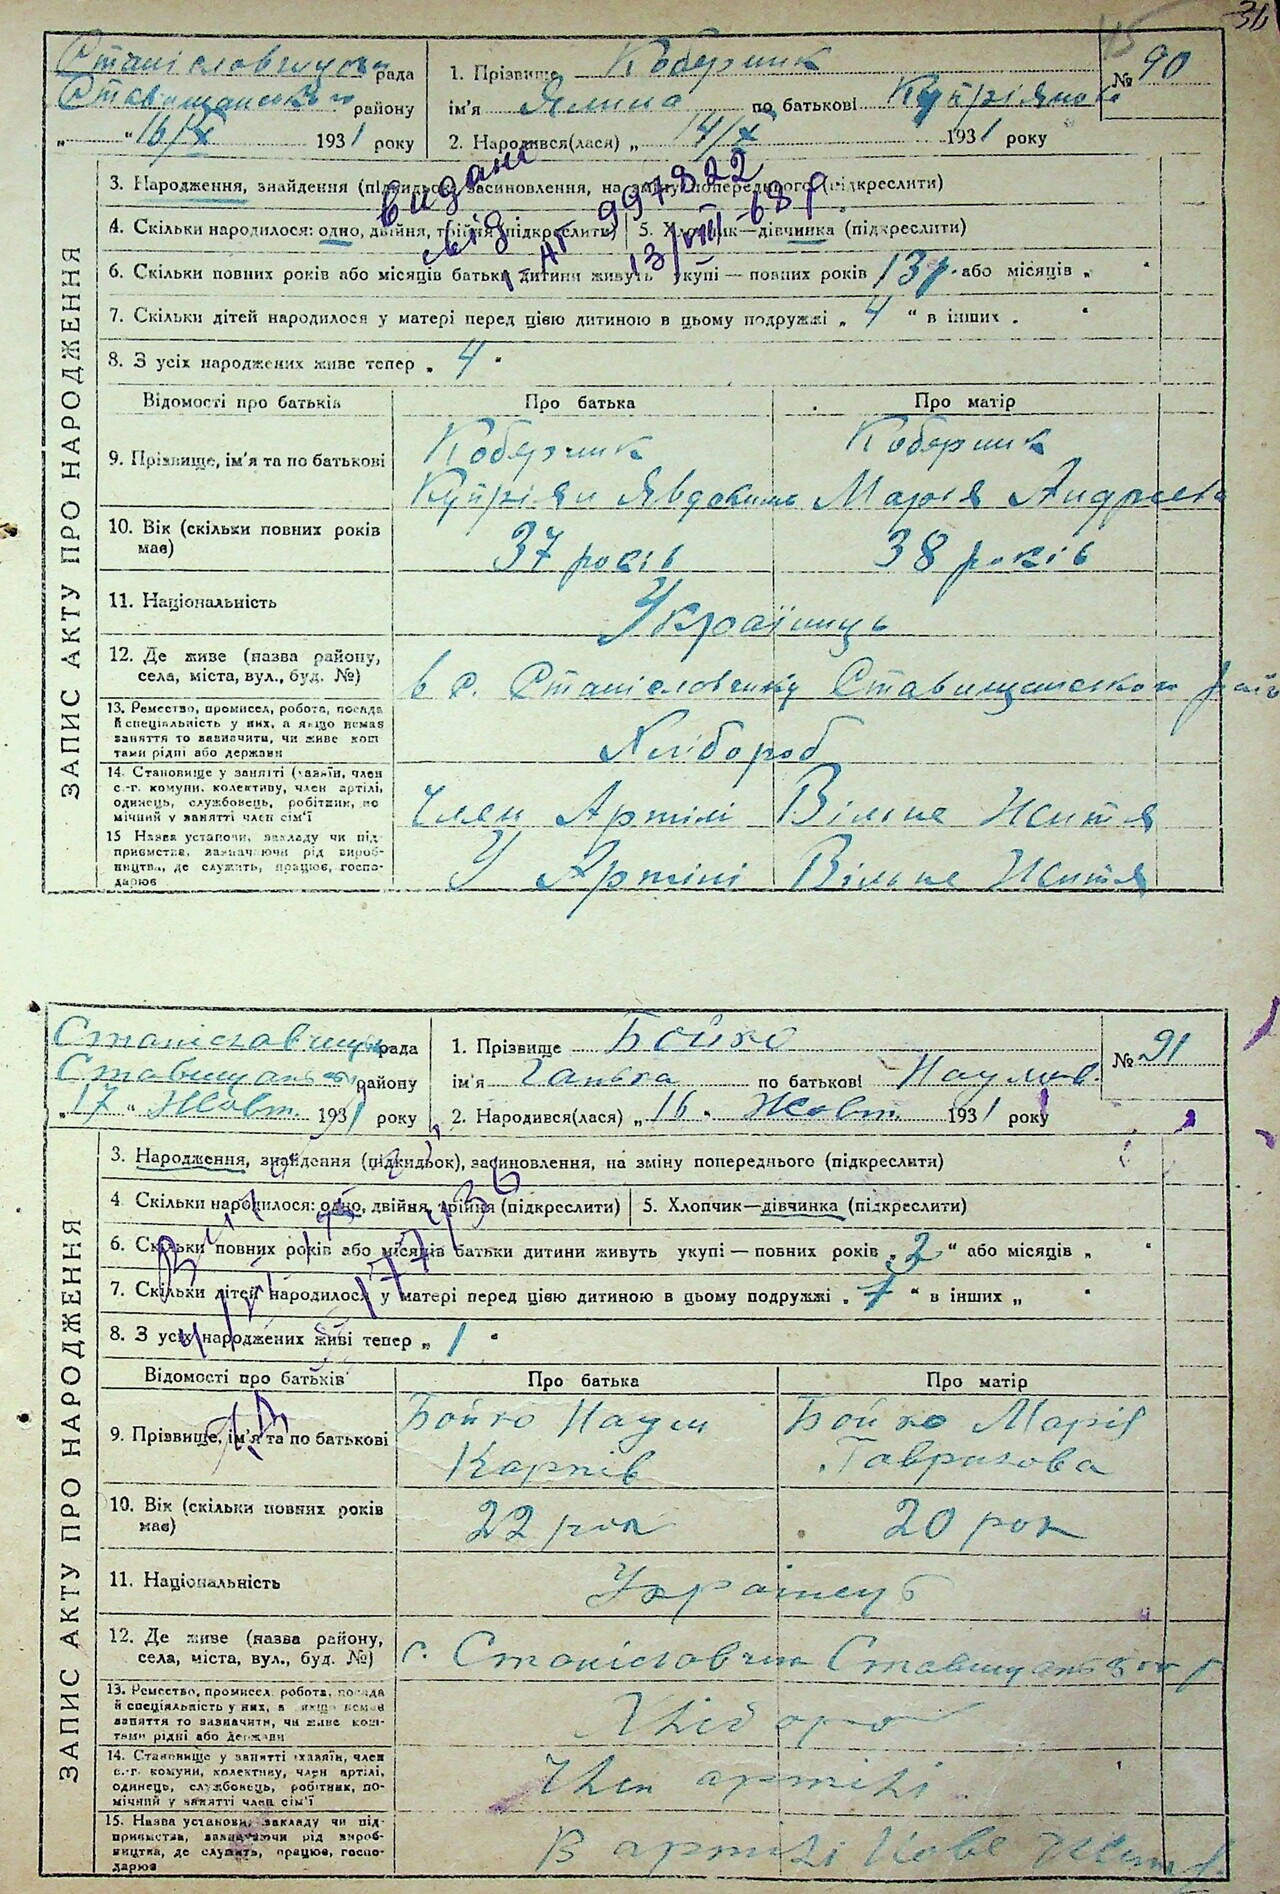 36
45
Станіславчицька рада
Ставищанського району
„ “ 16/X 1931 року
1. Прізвище Коберник
ім'я Ялина по батькові Купріянова
2. Народився(лася) „ 14/X 1931 року
№ 90
ЗАПИС АКТУ ПРО НАРОДЖЕННЯ
3. Народження, знайдення (підкидьок), засиновлення, на зміну попереднього (підкреслити)
4. Скільки народилося: одно, двійня, трійня (підкреслити) 5. Хлопчик—дівчинка (підкреслити)
видано
997822
13/VIII-68р
6. Скільки повних років або місяців батьки дитини живуть укупі — повних років 13р. або місяців „ “
7. Скільки дітей народилося у матері перед цією дитиною в цьому подружжі „ 4 “ в інших „ “
8. З усіх народжених живе тепер „ 4 “
Відомості про батьків Про батька Про матір
9. Прізвище, ім'я та по батькові Коберник Коберник
Купріян Явдоким Марія Андреева
10. Вік (скільки повних років має) 37 років 38 років
11. Національність Українць
12. Де живе (назва району, села, міста, вул., буд. №) в с. Станіславчику Ставищанського рай
13. Ремество, промисел, робота, посада й спеціальність у них, а якщо немає заняття то зазначити, чи живе коштами рідні або держави Хлібороб
14. Становище у занятті (хазяїн, член с.-г. комуни, колективу, член артілі, одинець, службовець, робітник, помічний у занятті член сім'ї Член Артілі Вільне Життя
15 Назва установи, закладу чи підприємства, зазначаючи рід виробництва, де служить, працює, господарює У Артілі Вільне Життя
Станіславчицька рада
Ставищанського району
„ 17 “ Жовт. 1931 року
1. Прізвище Бойко
ім'я Ганька по батькові Наумов.
2. Народився(лася) „ 16 „ Жовт. 1931 року
№ 91
ЗАПИС АКТУ ПРО НАРОДЖЕННЯ
3. Народження, знайдення (підкидьок), засиновлення, на зміну попереднього (підкреслити)
4 Скільки народилося: одно, двійня, трійня (підкреслити) 5. Хлопчик—дівчинка (підкреслити)
6. Скільки повних років або місяців батьки дитини живуть укупі — повних років „ 2 “ або місяців „ “
7. Скільки дітей народилося у матері перед цією дитиною в цьому подружжі „ 1 “ в інших „ “
8. З усіх народжених живі тепер „ 1 “
Відомості про батьків Про батька Про матір
9. Прізвище, ім'я та по батькові Бойко Наум Бойко Марія
Карпів Гаврилова
10. Вік (скільки повних років має) 22 рок 20 рок
11. Національність Українець
12. Де живе (назва району, села, міста, вул., буд. №) с. Станіславчик Ставищанського р
13. Ремество, промисел, робота, посада й спеціяльність у них, а якщо немає заняття то зазначити, чи живе коштами рідні або держави Хлібороб
14. Становище у занятті (хазяїн, член с.-г. комуни, колективу, член артілі, одинець, службовець, робітник, помічний у занятті член сім'ї Член артілі
15. Назва установи, закладу чи підприємства, зазначаючи рід виробництва, де служить, працює, господарює В артілі Нове Життя